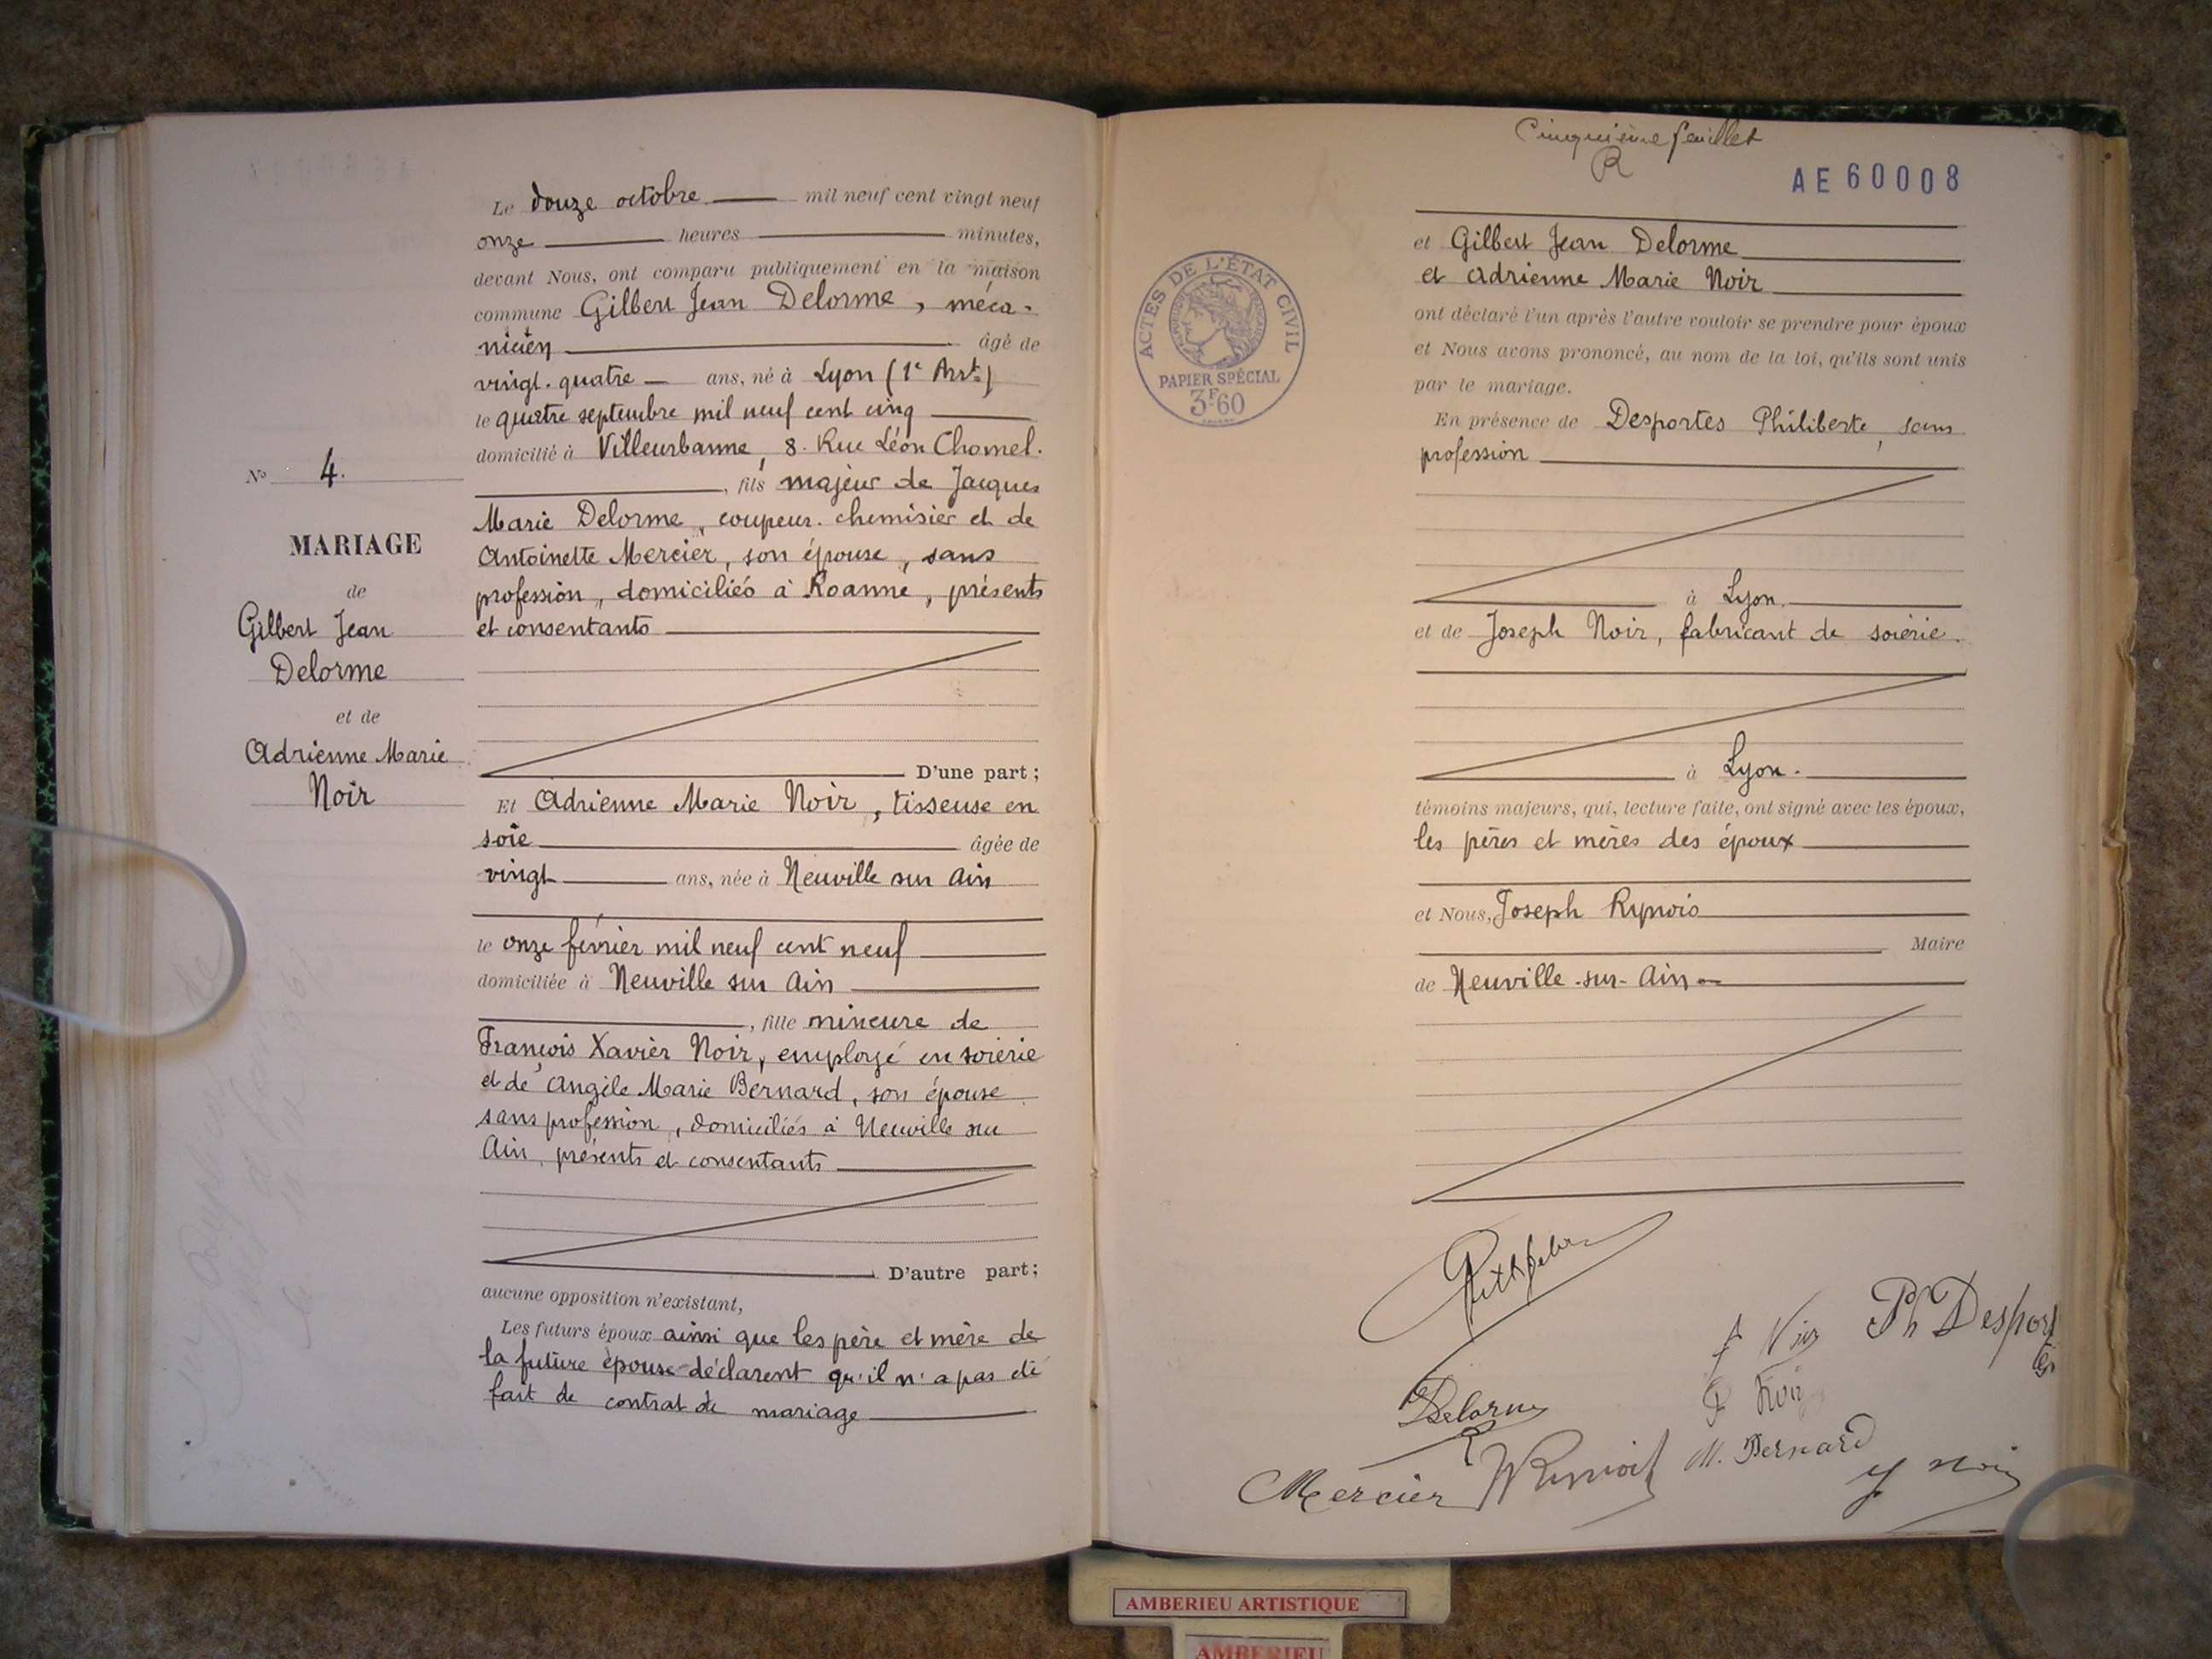 Le douze octobre mil neuf cent vingt neuf
onze heures minutes,
devant Nous, ont comparu publiquement en la maison
commune Gilbert Jean Delorme, méca-
nicien âgé de
vingt-quatre ans, né à Lyon (1e Arrt)
le quatre septembre mil neuf cent cinq
domicilié à Villeurbanne, 8. Rue Léon Chomel.
, fils majeur de Jacques
Marie Delorme, coupeur-chemisier et de
Antoinette Mercier, son épouse, sans
profession, domiciliés à Roanne, présents
et consentants
D'une part;
Et Adrienne Marie Noir, tisseuse en
soie âgée de
vingt ans, née à Neuville sur Ain
le onze février mil neuf cent neuf
domiciliée à Neuville sur Ain
, fille mineure de
François Xavier Noir, employé en soierie
et de Angèle Marie Bernard, son épouse
sans profession, domiciliés à Neuville sur
Ain, présents et consentants
D'autre part;
aucune opposition n'existant,
Les futurs époux ainsi que les père et mère de
la future épouse déclarent qu'il n'a pas été
fait de contrat de mariage
No 4.
MARIAGE
de
Gilbert Jean
Delorme
et de
Adrienne Marie
Noir
Cinquième feuillet
R
AE 60008
ACTES DE L'ÉTAT CIVIL
PAPIER SPÉCIAL
3F60
et Gilbert Jean Delorme
et Adrienne Marie Noir
ont déclaré l'un après l'autre vouloir se prendre pour époux
et Nous avons prononcé, au nom de la loi, qu'ils sont unis
par le mariage.
En présence de Desportes Philiberte, sans
profession
à Lyon.
et de Joseph Noir, fabricant de soierie.
à Lyon.
témoins majeurs, qui, lecture faite, ont signé avec les époux,
les pères et mères des époux
et Nous, Joseph
Maire
de Neuville-sur-Ain
Ph Desportes
Noir
Delorme
M. Bernard
Mercier
J Noir
AMBERIEU ARTISTIQUE
AMBERIEU